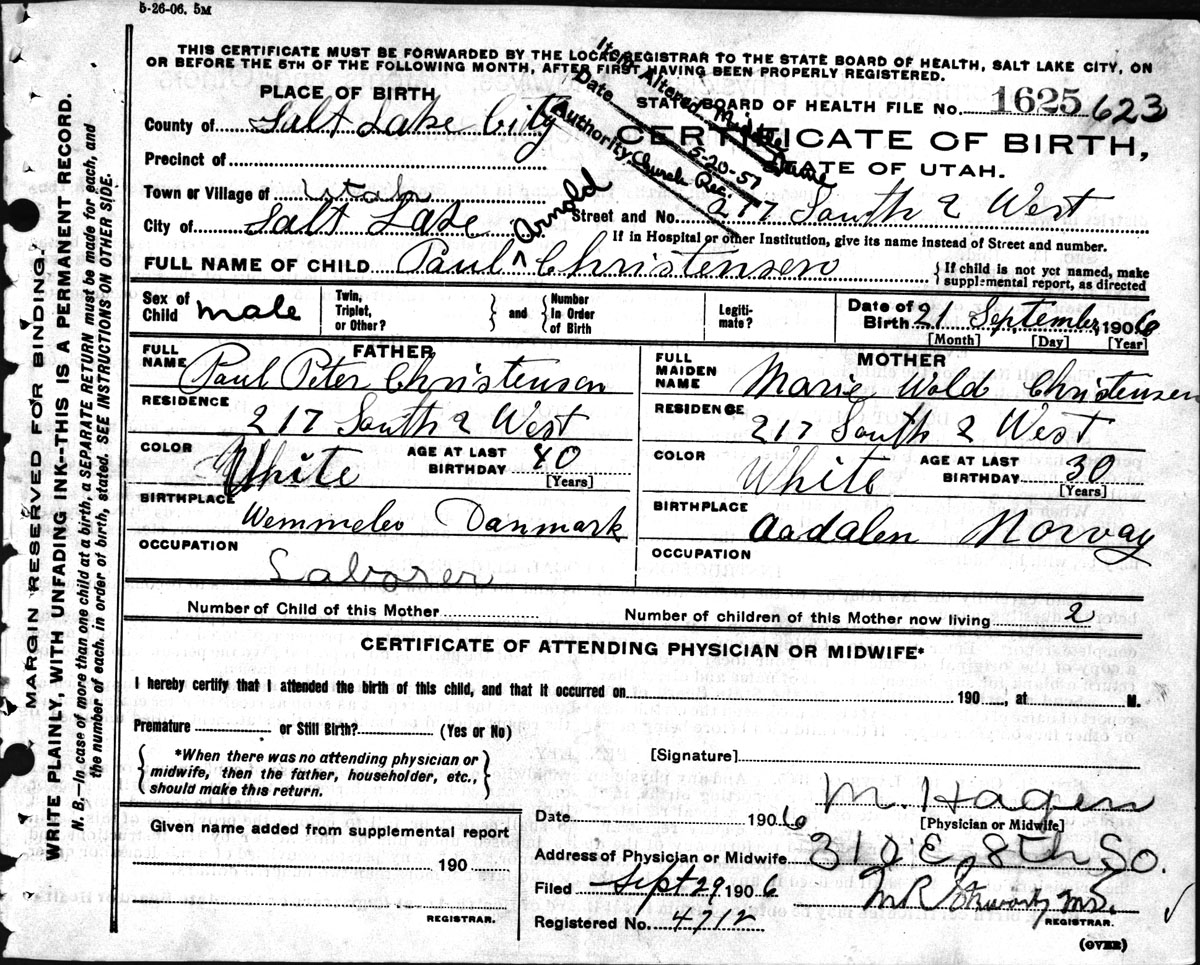 5-26-06. 5M
THIS CERTIFICATE MUST BE FORWARDED BY THE LOCAL REGISTRAR TO THE STATE BOARD OF HEALTH, SALT LAKE CITY, ON
OR BEFORE THE 5TH OF THE FOLLOWING MONTH, AFTER FIRST HAVING BEEN PROPERLY REGISTERED.
PLACE OF BIRTH
STATE BOARD OF HEALTH FILE No. 1625 623
County of Salt Lake City
CERTIFICATE OF BIRTH,
Item Altered Middle Name
Date 5-20-57
Authority Church Rec.
Precinct of
STATE OF UTAH.
Town or Village of Utah
City of Salt Lake
Street and No. 217 South 2 West
If in Hospital or other Institution, give its name instead of Street and number.
FULL NAME OF CHILD Paul ^ Arnold Christensen
{ If child is not yet named, make
supplemental report, as directed
Sex of Child male
Twin, Triplet, or Other? } and { Number In Order of Birth
Legiti- mate?
Date of Birth 21 September, 1906
[Month] [Day] [Year]
FATHER
FULL NAME Paul Peter Christensen
RESIDENCE
217 South 2 West
COLOR White AGE AT LAST BIRTHDAY 40
[Years]
BIRTHPLACE
Wemmelev Danmark
OCCUPATION
Laborer
MOTHER
FULL MAIDEN NAME Marie Wold Christensen
RESIDENCE
217 South 2 West
COLOR White AGE AT LAST BIRTHDAY 30
[Years]
BIRTHPLACE
Aadalen Norvay
OCCUPATION
Number of Child of this Mother
Number of children of this Mother now living 2
CERTIFICATE OF ATTENDING PHYSICIAN OR MIDWIFE*
I hereby certify that I attended the birth of this child, and that it occurred on 190 , at M.
Premature or Still Birth? (Yes or No)
{ *When there was no attending physician or
midwife, then the father, householder, etc.,
should make this return. }
[Signature]
M. Hagen
[Physician or Midwife]
Date 1906
Given name added from supplemental report
190
REGISTRAR.
Address of Physician or Midwife 310 E. 8th So.
Filed Sept 29 1906
M.R. MD.
REGISTRAR.
Registered No. 4712
(OVER)
MARGIN RESERVED FOR BINDING.
WRITE PLAINLY, WITH UNFADING INK--THIS IS A PERMANENT RECORD.
N. B.—In case of more than one child at a birth, a SEPARATE RETURN must be made for each, and
the number of each, in order of birth, stated. SEE INSTRUCTIONS ON OTHER SIDE.